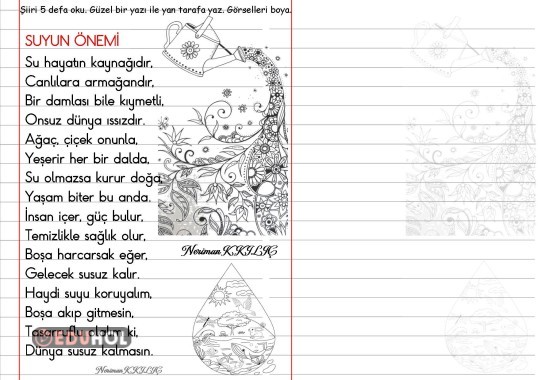 Şiiri 5 defa oku. Güzel bir yazı ile yan tarafa yaz. Görselleri boya.
SUYUN ÖNEMİ
Su hayatın kaynağıdır,
Canlılara armağandır,
Bir damlası bile kıymetli,
Onsuz dünya ıssızdır.
Ağaç, çiçek onunla,
Yeşerir her bir dalda,
Su olmazsa kurur doğa,
Yaşam biter bu anda.
İnsan içer, güç bulur,
Temizlikle sağlık olur,
Boşa harcarsak eğer,
Gelecek susuz kalır.
Haydi suyu koruyalım,
Boşa akıp gitmesin,
Tasarruflu olalım ki,
Dünya susuz kalmasın.
Neriman KKILIÇ
EDUHOL
Neriman KKILIÇ